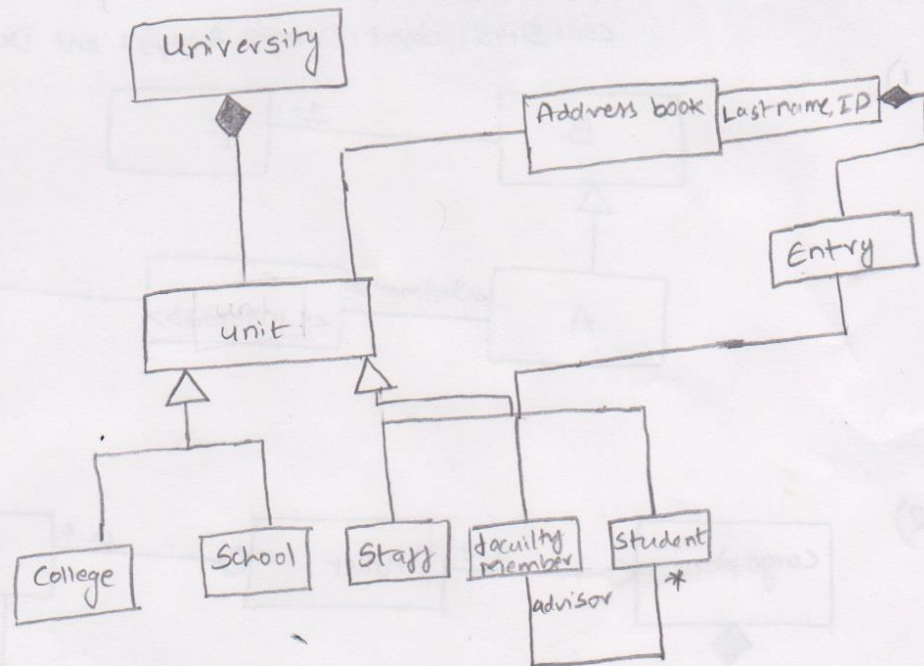 University
Address book
Last name, ID
Entry
unit
College
School
Staff
facuilty
member
Student
advisor
*